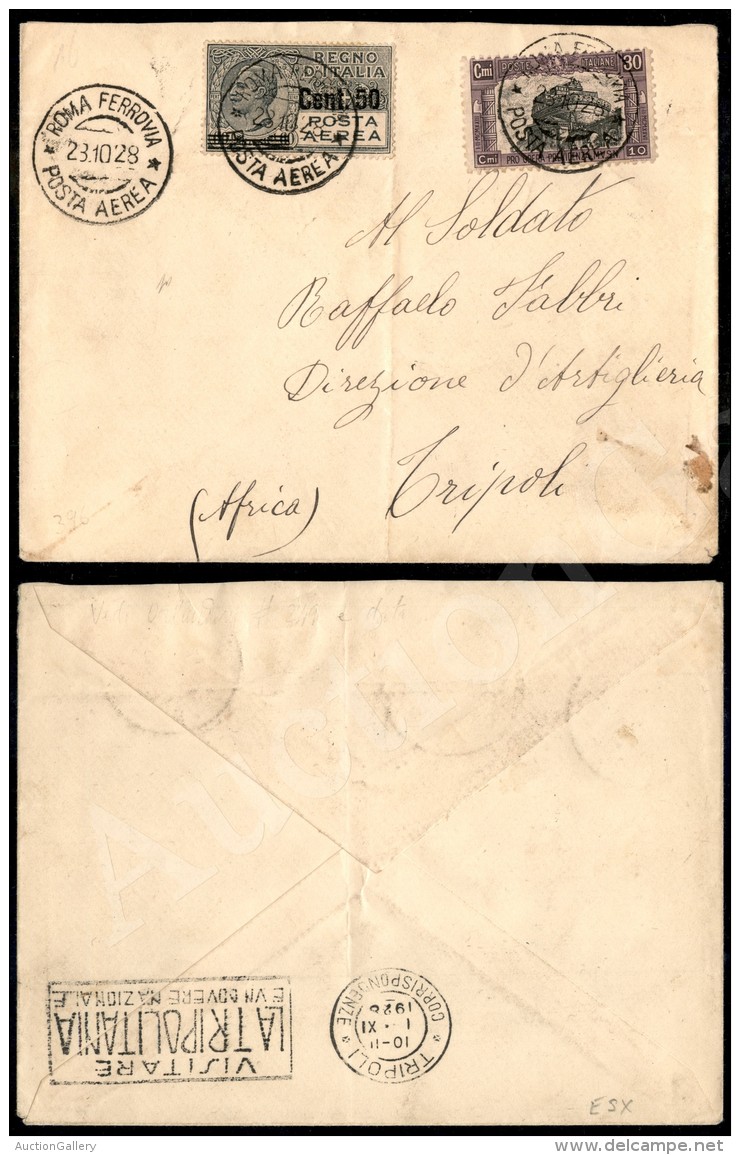 ROMA FERROVIA
23.10 28
POSTA AEREA
REGNO
D'ITALIA
Cent. 50
POSTA
AEREA
POSTA AEREA
Cmi POSTE ITALIANE 30
Cmi PRO OPERA 10
POSTA AEREA
Al Soldato
Raffaelo Fabbri
Direzione d'Artiglieria
Tripoli
(Africa)
296
VISITARE
LA TRIPOLITANIA
E VN DOVERE NAZIONALE
TRIPOLI
10-11
1 · XI
1928
CORRISPONDENZE
ESX
AuctionGallery
delcampe.net